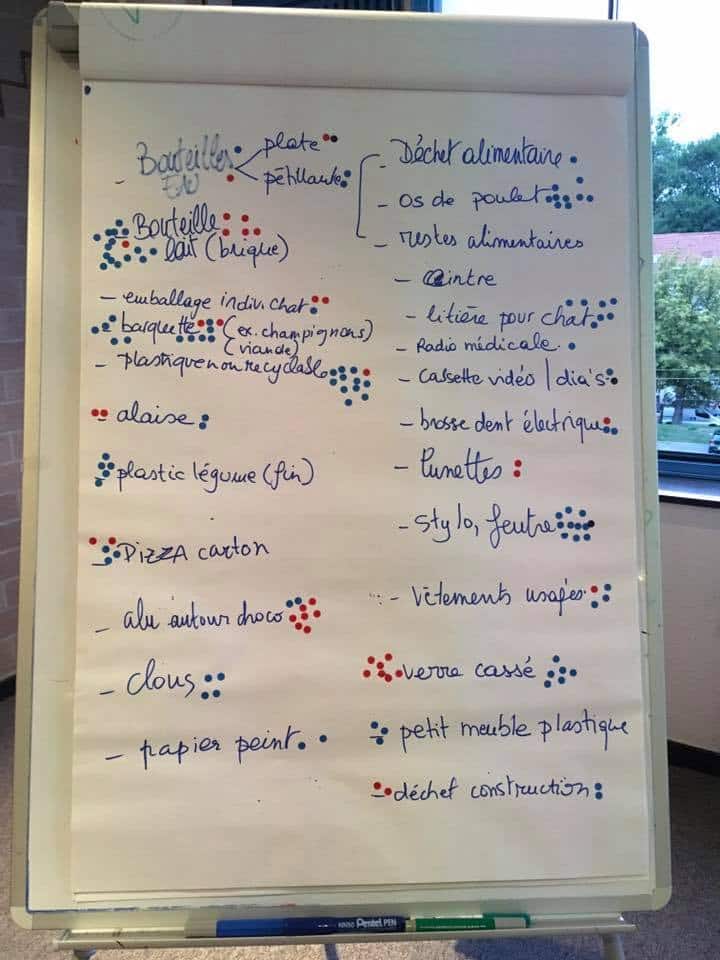 - Bouteilles plate
Eau pétillante
- Bouteille
lait (brique)
- emballage indiv. chat
- barquette (ex. champignons)
(viande)
- plastique non recyclable
- alaise
- plastic légume (fin)
- PIZZA carton
- alu autour choco
- clous
- papier peint
- Déchet alimentaire
- os de poulet
- restes alimentaires
- Cintre
- litière pour chat
- Radio médicale
- Cassette vidéo / dia's
- brosse dent électrique
- Lunettes
- Stylo, feutre
- Vêtements usagés
- verre cassé
- petit meuble plastique
- déchet construction
Pentel PEN